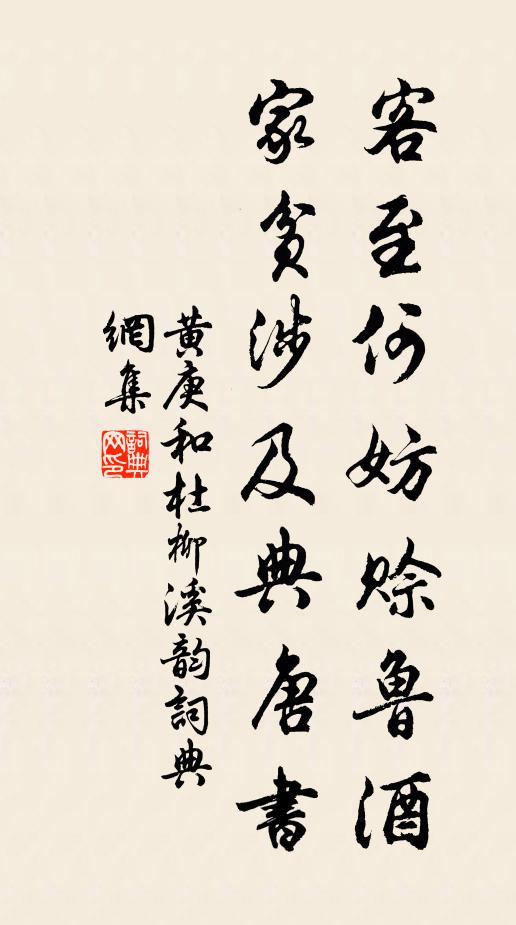 客至何妨賒魯酒
家貧涉及典唐書
黄庚和杜柳溪韵詞典
網集
詞典
网印